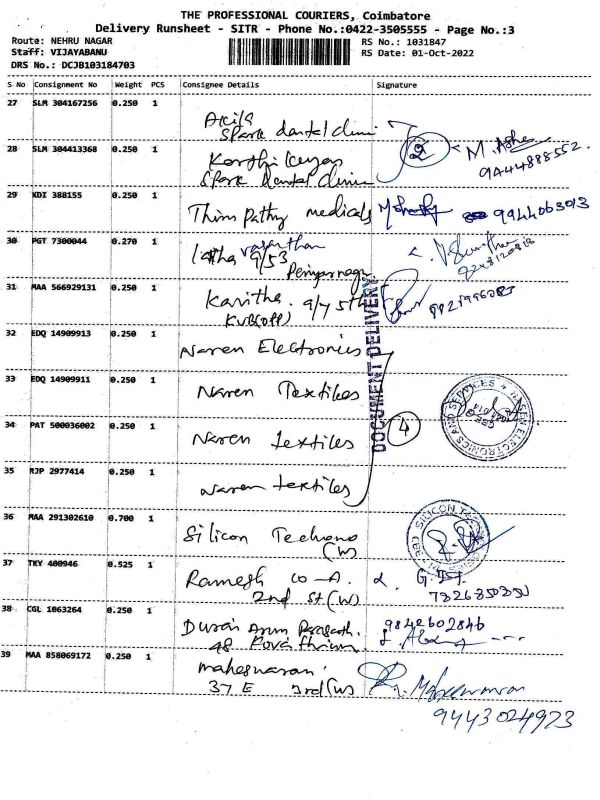 THE PROFESSIONAL COURIERS, Coimbatore
Delivery Runsheet - SITR - Phone No.:0422-3505555 - Page No.:3
Route: NEHRU NAGAR RS No.: 1031847
Staff: VIJAYABANU RS Date: 01-Oct-2022
DRS No.: DCJB103184703
S No Consignment No Weight PCS Consignee Details Signature
27 SLM 304167256 0.250 1
Akila
Spark dental clinic
28 SLM 304413368 0.250 1 M. Asha
Karthikeyan 9A44888552
Spark Dental clinic
29 KDI 388155 0.250 1
Thirupathy medicals 9944063013
30 PGT 7300044 0.270 1
latha rajarathan
9/53
Periyar nagar
31 MAA 566929131 0.250 1
Kavitha 9/7 5th
KVB(off)
32 EDQ 14909913 0.250 1
Naren Electronics
DOCUMENT DELIVERY
33 EDQ 14909911 0.250 1
Naren Textiles
34 PAT 500036002 0.250 1 4
Naren textiles
35 RJP 2977414 0.250 1
Naren textiles
36 MAA 291302610 0.700 1
Silicon Techno
(W)
37 TKY 400946 0.525 1
Ramesh 10-A.
2nd St.(W)
38 CGL 1063264 0.250 1
Durai Arun Prasath. 9842602846
48
39 MAA 858069172 0.250 1
maheswaran
37 E 3rd (W)
9443024973